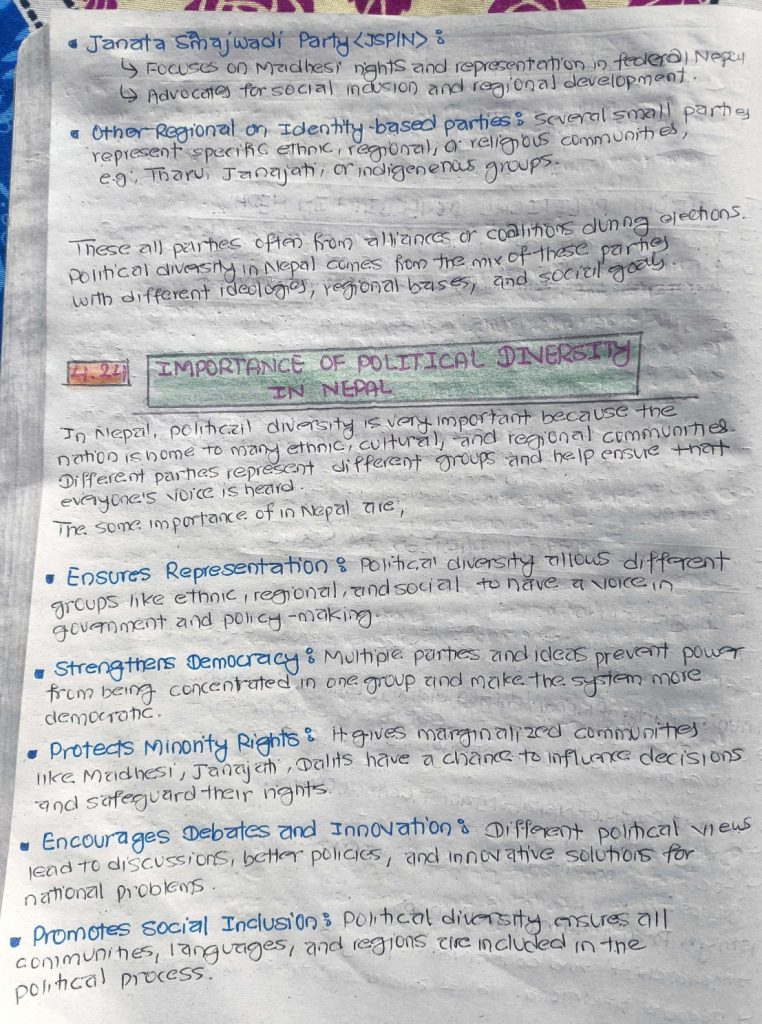 • Janata Smajwadi Party <JSP|N> :
↳ Focuses on Madhesi rights and representation in federal Nepal
↳ Advocates for social inclusion and regional development.
• Other Regional on Identity-based parties : several small parties
represent specific ethnic, regional, or religious communities,
e.g., Tharu, Janajati, or indigenenas groups.
These all parties often from alliances or coalitions during elections.
Political diversity in Nepal comes from the mix of these parties
with different ideologies, regional bases, and social goals.
4.24 IMPORTANCE OF POLITICAL DIVERSITY
IN NEPAL
In Nepal, political diversity is very important because the
nation is home to many ethnic, cultural, and regional communities.
Different parties represent different groups and help ensure that
everyone's voice is heard.
The some importance of in Nepal are,
• Ensures Representation : Political diversity allows different
groups like ethnic, regional, and social to have a voice in
government and policy-making.
• Strengthens Democracy : Multiple parties and ideas prevent power
from being concentrated in one group and make the system more
democratic.
• Protects Minority Rights : It gives marginalized communities
like Madhesi, Janajati, Dalits have a chance to influence decisions
and safeguard their rights.
• Encourages Debates and Innovation : Different political views
lead to discussions, better policies, and innovative solutions for
national problems.
• Promotes Social Inclusion : Political diversity ensures all
communities, languages, and regions are included in the
political process.